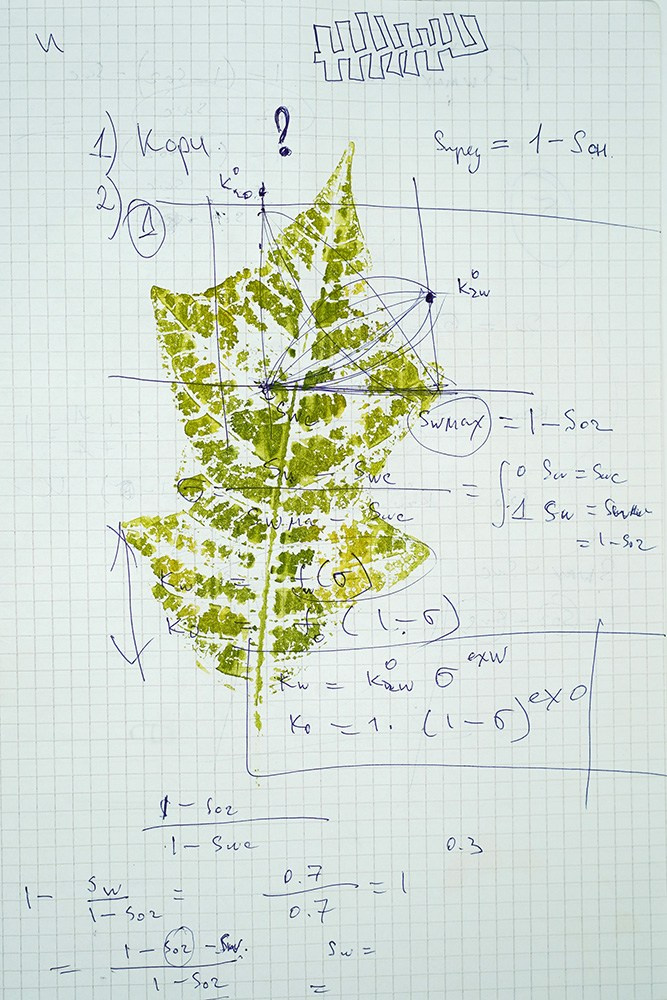 1) Кори. ?
Sпред = 1 - Sон.
2) 1
K°ro
K°rw
Swc
SwMAX = 1 - Sor
σ = Sw - Swc / Sw max - Swc = { 0 Sw = Swc
1 Sw = Swmax
= 1 - Sor
Kw = fw(σ)
Ko = fo(1-σ)
Kw = K°rw σ^exw
Ko = 1. (1-σ)^exo
1 - Sor / 1 - Swc
0.3
1 - Sw / 1 - Sor = 0.7 / 0.7 = 1
= 1 - Sor - Sw. / 1 - Sor
Sw =
=